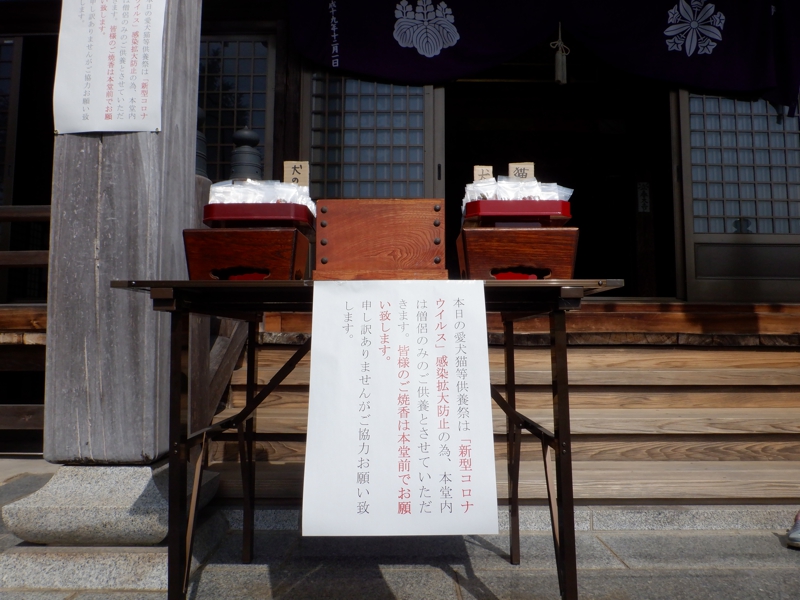 本日の愛犬猫等供養祭は「新型コロナ
ウイルス」感染拡大防止の為、本堂内
は僧侶のみのご供養とさせていただ
きます。皆様のご焼香は本堂前でお願
い致します。
申し訳ありませんがご協力お願い致
します。
本日の愛犬猫等供養祭は「新型コロナ
ウイルス」感染拡大防止の為、本堂内
は僧侶のみのご供養とさせていただ
きます。皆様のご焼香は本堂前でお願
い致します。
申し訳ありませんがご協力お願い致
犬の
犬
猫
十九年十二月一日